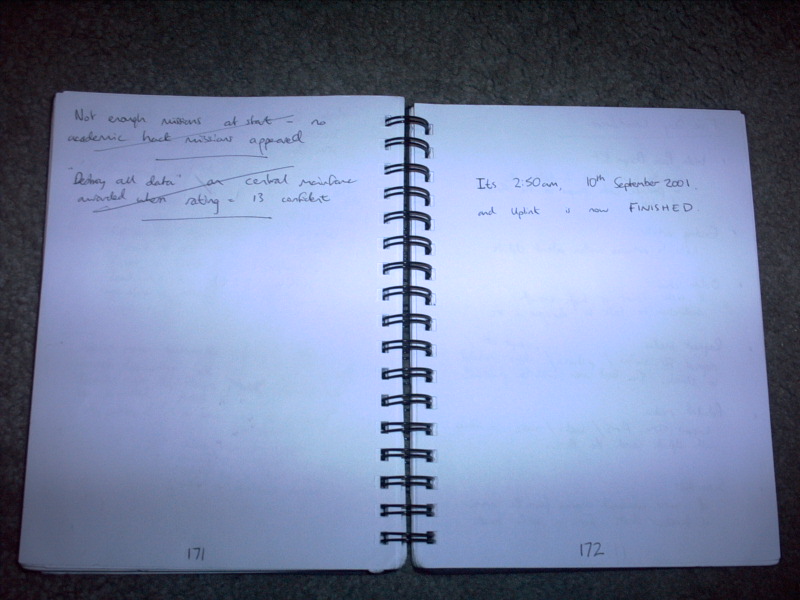 Not enough missions at start - no
academic hack missions appeared
"Destroy all data" on central mainframe
awarded when rating = 13 confident
171
Its 2:50am, 10th September 2001.
and Uplink is now FINISHED.
172